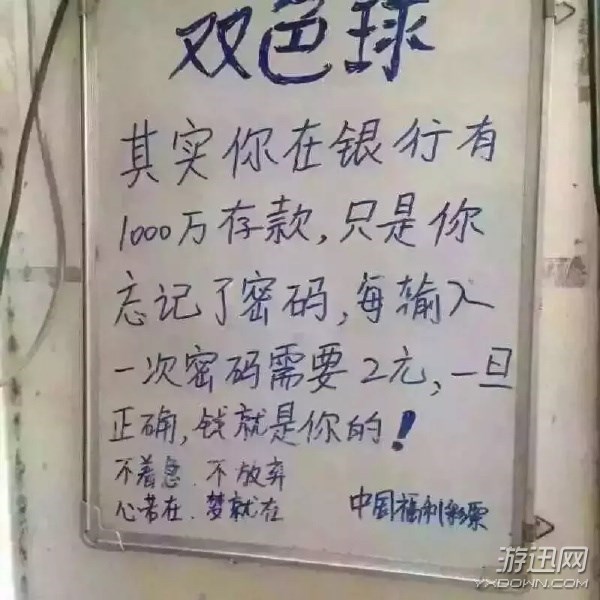 双色球
其实你在银行有
1000万存款,只是你
忘记了密码,每输入
一次密码需要2元,一旦
正确,钱就是你的!
不着急.不放弃
心若在.梦就在
中国福利彩票
游迅网
YXDOWN.COM